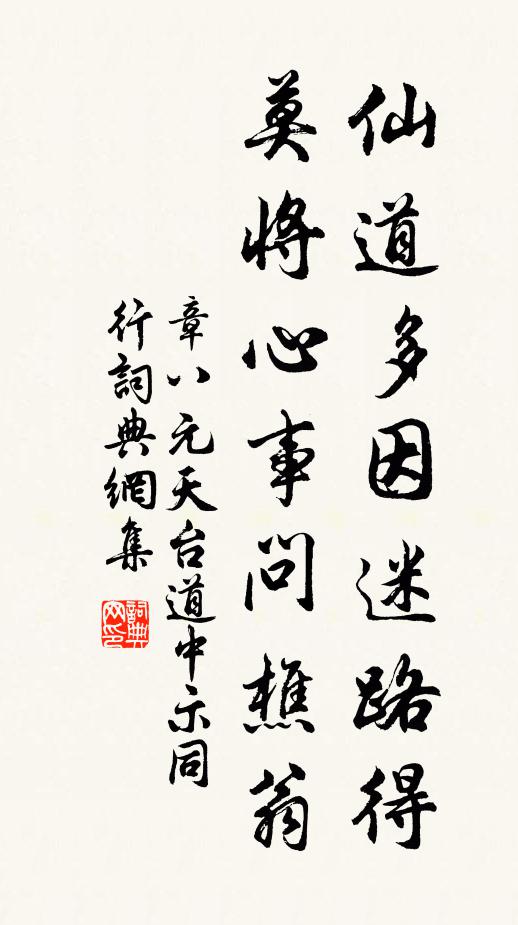 仙道多因迷路得
莫將心事問樵翁
章八元天台道中示同
行詞典網集
詞典网印